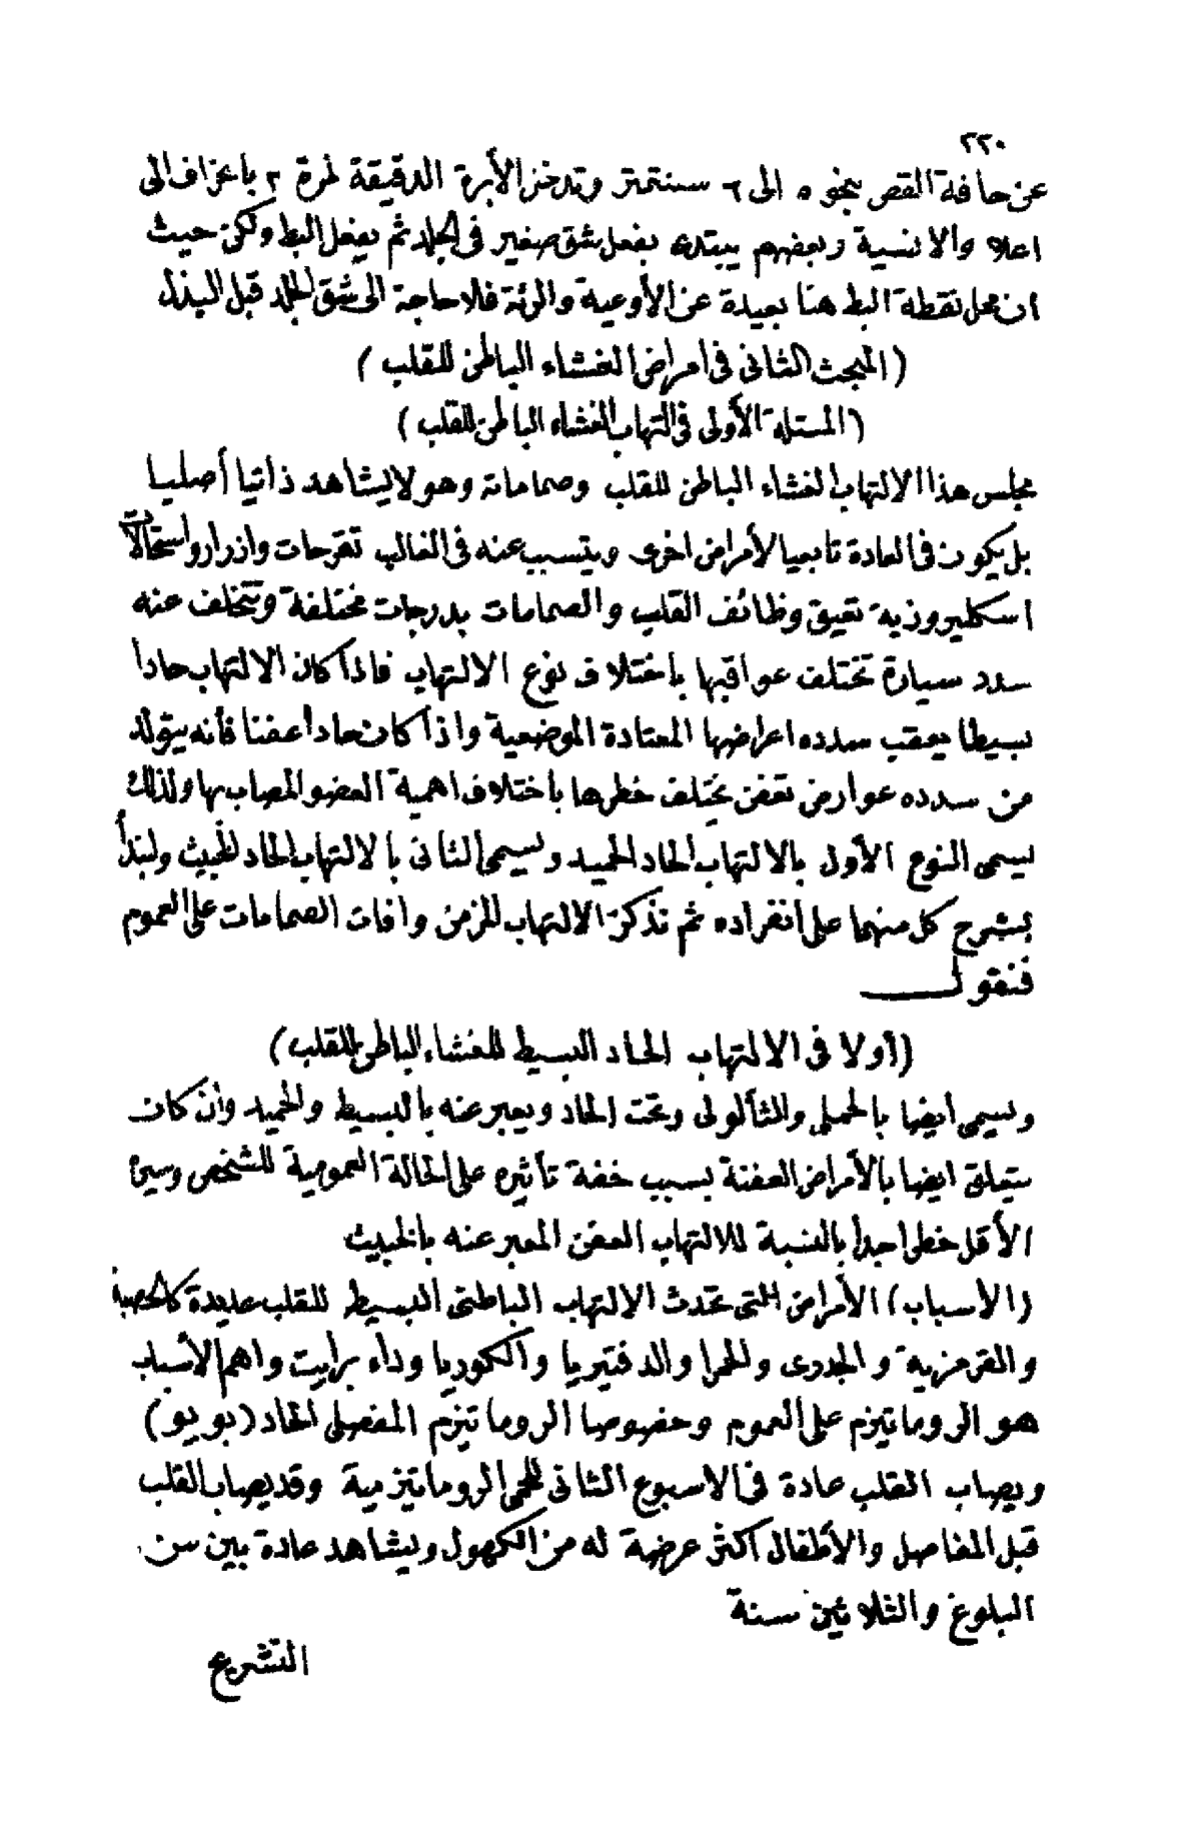 ٢٢٠
عن حافة القص بنحو ٥ الى ٦ سنتمتر وتدخل الأبرة الدقيقة لمرة ٢ بانحراف الى
اعلا والانسية وبعضهم يبتدء بفعل شق صغير فى الجلد ثم يفعل البط ولكن حيث
ان محل نقطة البط هنا بعيدة عن الأوعية والرئة فلا حاجة الى شق الجلد قبل البذل
(المبحث الثانى فى امراض الغشاء الباطن للقلب)
(المسئلة الأولى فى التهاب الغشاء الباطن للقلب)
مجلس هذا الالتهاب الغشاء الباطن للقلب وصماماته وهو لا يشاهد ذاتيا أصليا
بل يكون فى العادة تابعيا لأمراض اخرى ويتسبب عنه فى الغالب تقرحات وازرار واستحالات
اسكليروزية تعيق وظائف القلب والصمامات بدرجات مختلفة وتتخلف عنه
سدد سيارة تختلف عواقبها باختلاف نوع الالتهاب فاذا كان الالتهاب حادا
بسيطا يعقب سدده اعراضها المعتادة الموضعية واذا كان حادا عفنا فأنه يتولد
من سدده عوارض تعفن يختلف خطرها باختلاف اهمية العضو المصاب بها ولذلك
يسمى النوع الأول بالالتهاب الحاد الحميد ويسمى الثانى بالالتهاب الحاد الخبيث ولنبدأ
بشرح كل منهما على انفراده ثم نذكر الالتهاب المزمن وافات الصمامات على العموم
فنقول
(أولا فى الالتهاب الحاد البسيط للغشاء الباطن للقلب)
ويسمى ايضا بالحملى والثألولى وتحت الحاد ويعبر عنه بالبسيط والحميد وان كان
يتعلق ايضا بالأمراض العفنة بسبب خفة تأثيره على الحالة العمومية للشخص وسيره
الأقل خطرا جدا بالنسبة للالتهاب العفن المعبر عنه بالخبيث
(الأسباب) الأمراض التى تحدث الالتهاب الباطنى البسيط للقلب عديدة كالحصبة
والقرمزية والجدرى والحمرا والدفتيريا والكوريا وداء برايت واهم الأسباب
هو الروماتيزم على العموم وخصوصا الروماتيزم المفصلى الحاد (بويو)
ويصاب القلب عادة فى الاسبوع الثانى للحمى الروماتيزمية وقد يصاب القلب
قبل المفاصل والأطفال اكثر عرضة له من الكهول ويشاهد عادة بين سن
البلوغ والثلاثين سنة
التشريح